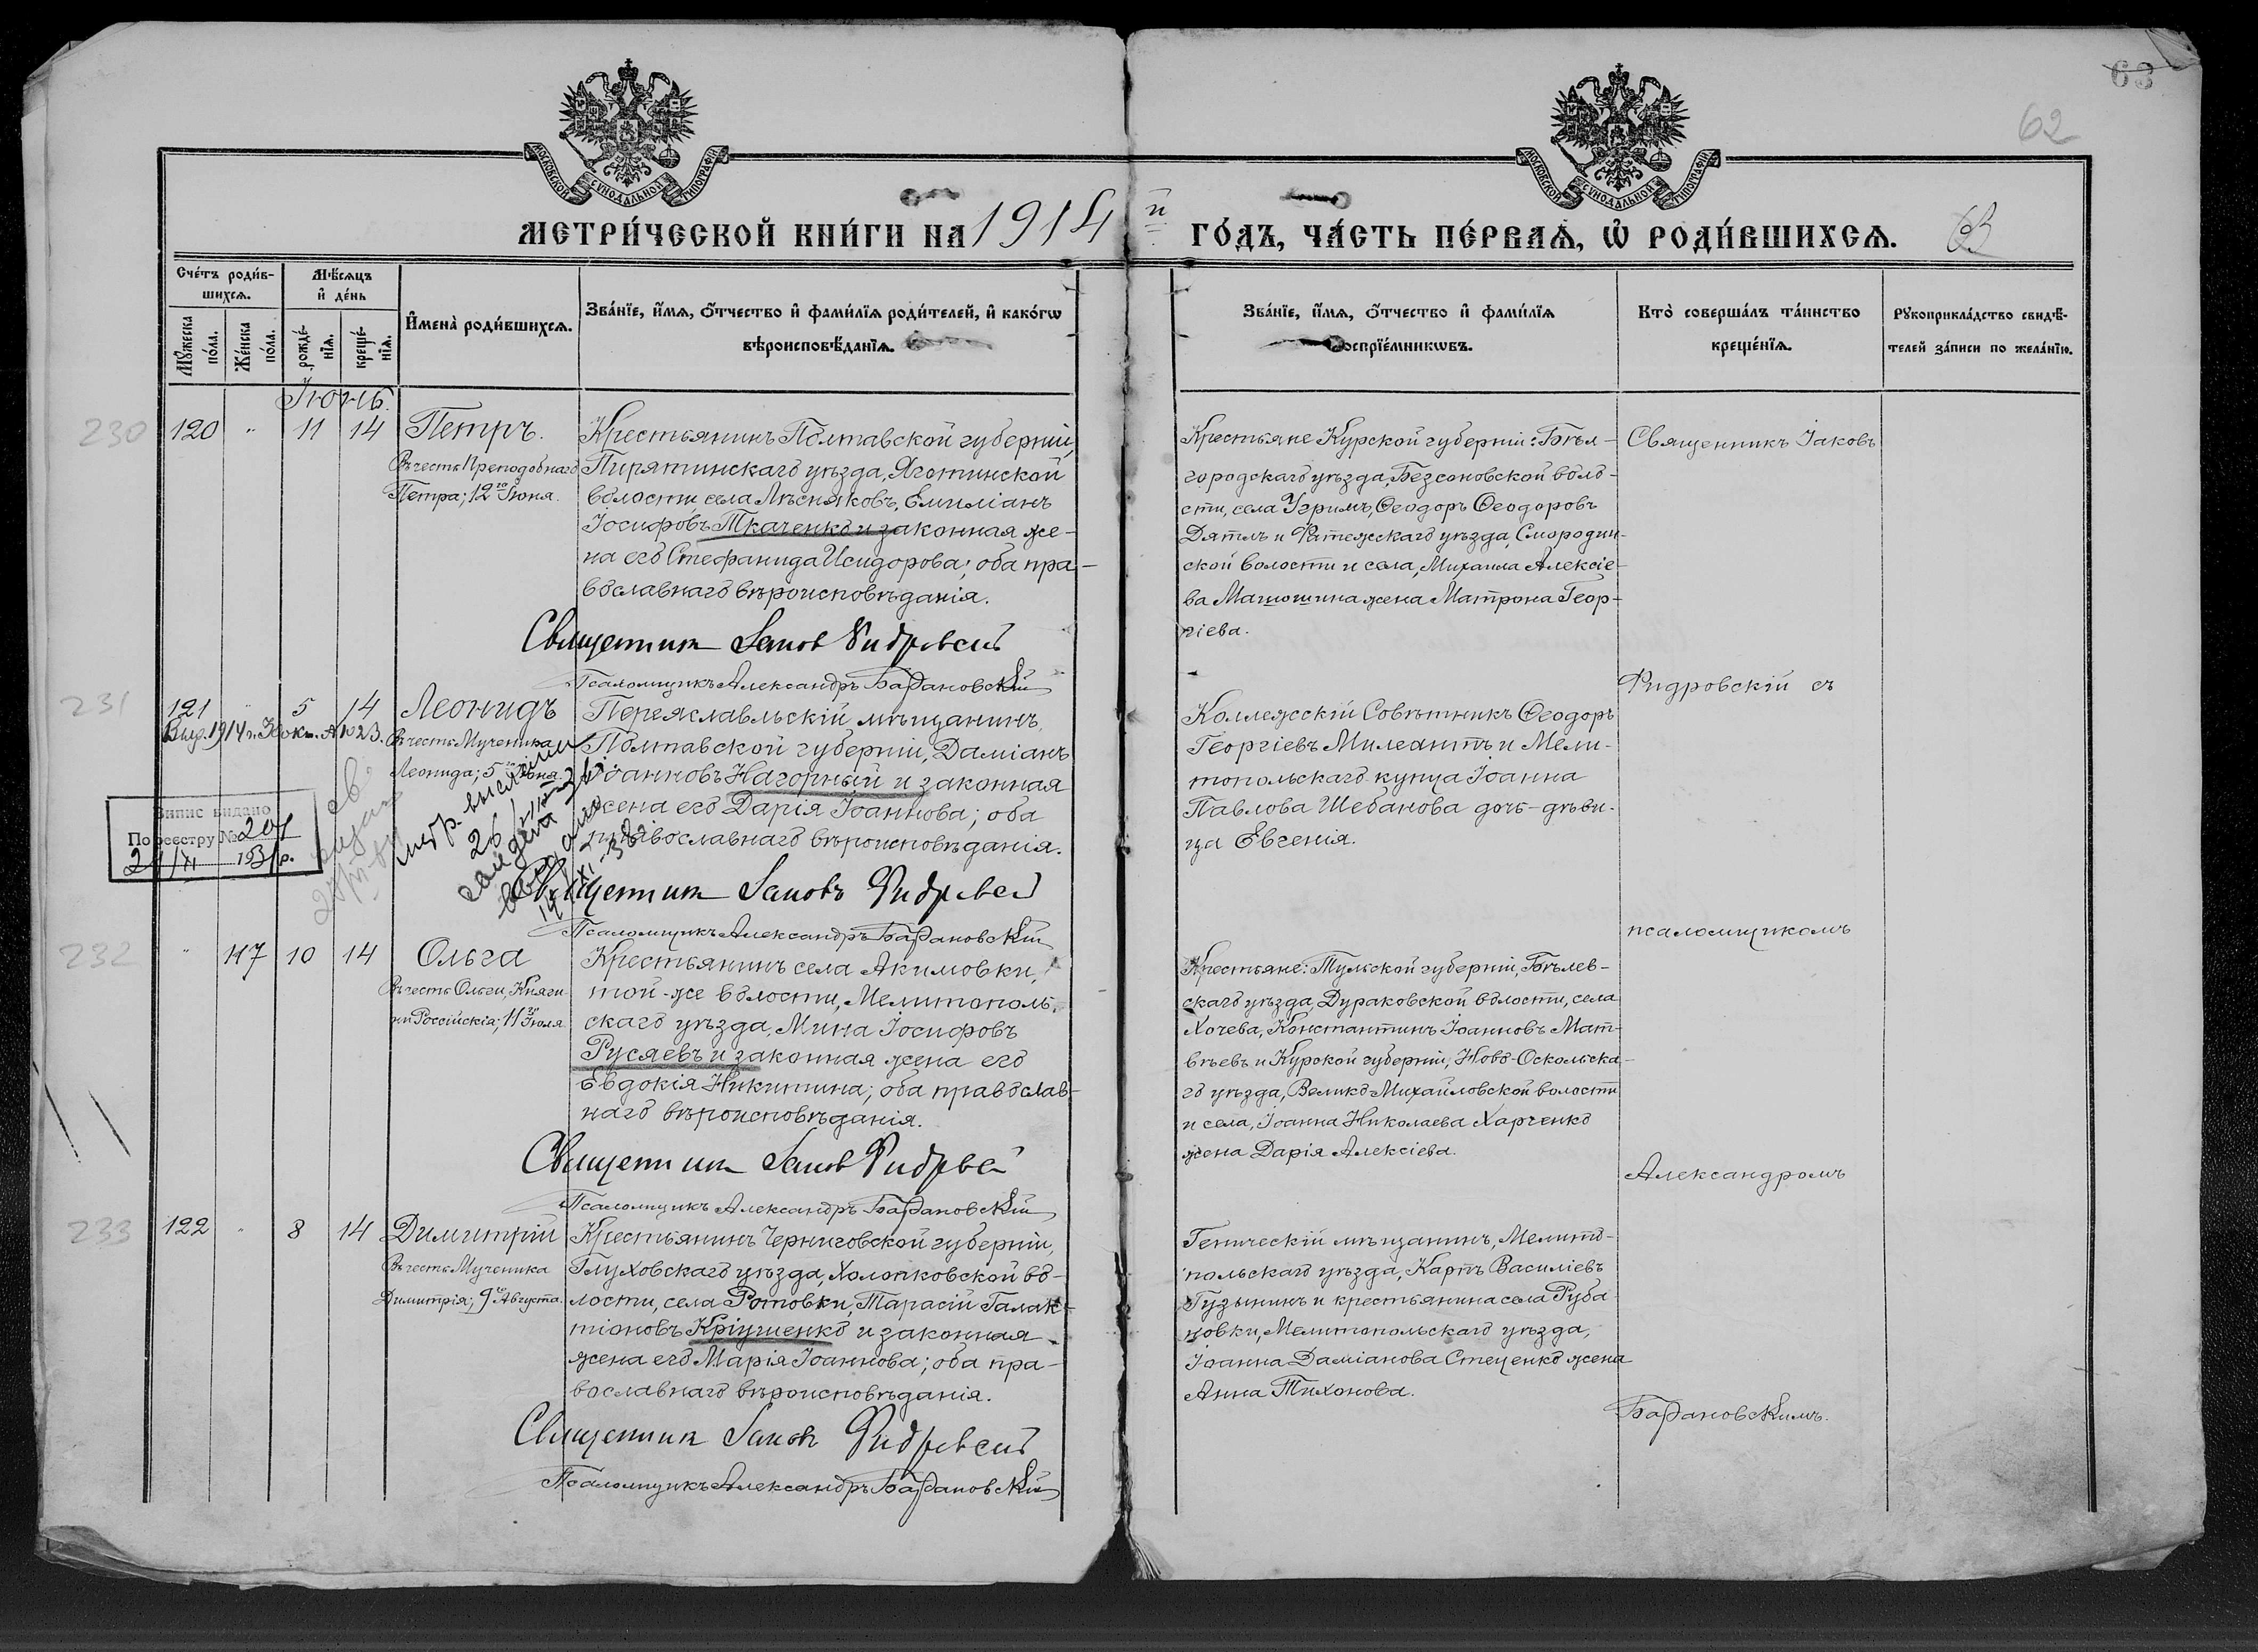 63
62
МОСКОВСКОЙ СѴНОДАЛЬНОЙ ТИПОГРАФІИ
МОСКОВСКОЙ СѴНОДАЛЬНОЙ ТИПОГРАФІИ
МЕТРИ́ЧЕСКОЙ КНИ́ГИ НА 1914 й ГО́ДЪ, ЧА́СТЬ ПЕ́РВАѦ, Ѽ РОДИ́ВШИХСѦ. 63
Сче́тъ роди́в-
шихсѧ.
Мꙋ́жеска по́ла.
Же́нска по́ла.
Мѣ́сѧцъ
и҆ де́нь
рожде́-
нїѧ.
креще́-
нїѧ.
И҆мена̀ роди́вшихсѧ.
Зва́нїе, и҆́мѧ, ѻ҆́тчество и҆ фами́лїѧ роди́телей, и҆ како́гѡ
вѣроисповѣ́данїѧ.
Зва́нїе, и҆́мѧ, ѻ҆́тчество и҆ фами́лїѧ
воспрїе́мникѡвъ.
Кто̀ соверша́лъ та́инство
креще́нїѧ.
Рꙋкоприкла́дство свидѣ́-
телей за́писи по жела́нїю.
Іюнь.
230
120 " 11 14 Петръ.
Въ честь Преподобнаго
Петра; 12го Іюня.
Крестьянинъ Полтавской губерніи,
Пирятинскаго уѣзда, Яготинской
волости, села Лѣсняковъ, Емиліанъ
Іосифовъ Ткаченко и законная же-
на его Стефанида Исидорова; оба пра-
вославнаго вѣроисповѣданія.
Священникъ Іаковъ Фидровскій
Псаломщикъ Александръ Барановскій
Крестьяне Курской губерніи: Бѣл-
городскаго уѣзда, Безсоновской воло-
сти, села Угримъ, Ѳеодоръ Ѳеодоровъ
Дятлъ и Фатежскаго уѣзда, Смородин-
ской волости и села, Михаила Алексіе-
ва Матрона Геор-
гіева.
Священникъ Іаковъ
231
121 " 5 14 Леонидъ
Выд. 1914 г. 30 окт. № 1023.
Въ честь Мученика
Леонида; 5го Іюня.
Переяславльскій мѣщанинъ,
Полтавской губерніи, Даміанъ
Іоанновъ Нагорный и законная
жена его Дарія Іоаннова; оба
православнаго вѣроисповѣданія.
Випис видано
По реестру № 201
24/XI 193 р.
Священникъ Іаковъ Фидровскій
Псаломщикъ Александръ Барановскій
Коллежскій Совѣтникъ Ѳеодоръ
Георгіевъ Милеантъ и Мели-
топольскаго купца Іоанна
Павлова Шебанова дочь-дѣви-
ца Евгенія.
Фидровскій съ
232
" 117 10 14 Ольга
Въ честь Ольги, Княги-
ни Россійскія; 11го Іюля
Крестьянинъ села Акимовки,
той-же волости, Мелитополь-
скаго уѣзда, Мина Іосифовъ
Русяевъ и законная жена его
Евдокія Никитина; оба православ-
наго вѣроисповѣданія.
Священникъ Іаковъ Фидровскій
Псаломщикъ Александръ Барановскій
псаломщикомъ
Крестьяне: Тульской губерніи, Бѣлев-
скаго уѣзда, Дураковской волости, села
Хочева, Константинъ Іоанновъ Мат-
вѣевъ и Курской губерніи, Ново-Оскольска-
го уѣзда, Велико-Михайловской волости
и села, Іоанна Николаева Харченко
жена Дарія Алексіева.
Александромъ
233
122 " 8 14 Димитрій
Въ честь Мученика
Димитрія; 9го Августа.
Крестьянинъ Черниговской губерніи,
Глуховскаго уѣзда, Холопковской во-
лости, села Ротовки, Тарасій Галак-
тіоновъ Кріушенко и законная
жена его Марія Іоаннова; оба пра-
вославнаго вѣроисповѣданія.
Священникъ Іаковъ Фидровскій
Псаломщикъ Александръ Барановскій
Геническій мѣщанинъ, Мелито-
польскаго уѣзда, Карпъ Василіевъ
Гузынинъ и крестьянина села Руба-
новки, Мелитопольскаго уѣзда,
Іоанна Даміанова Стеценко жена
Анна Тихонова.
Барановскимъ.